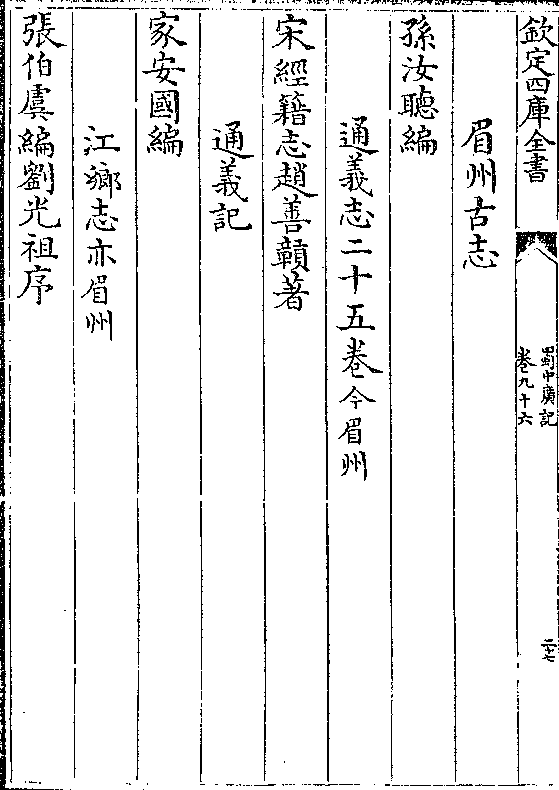 欽定四庫全書
蜀中廣記
卷九十六
二十七
眉州古志
孫汝聽編
通義志二十五卷今眉州
宋經籍志趙善贑著
通義記
家安國編
江鄉志亦眉州
張伯虞編劉光祖序